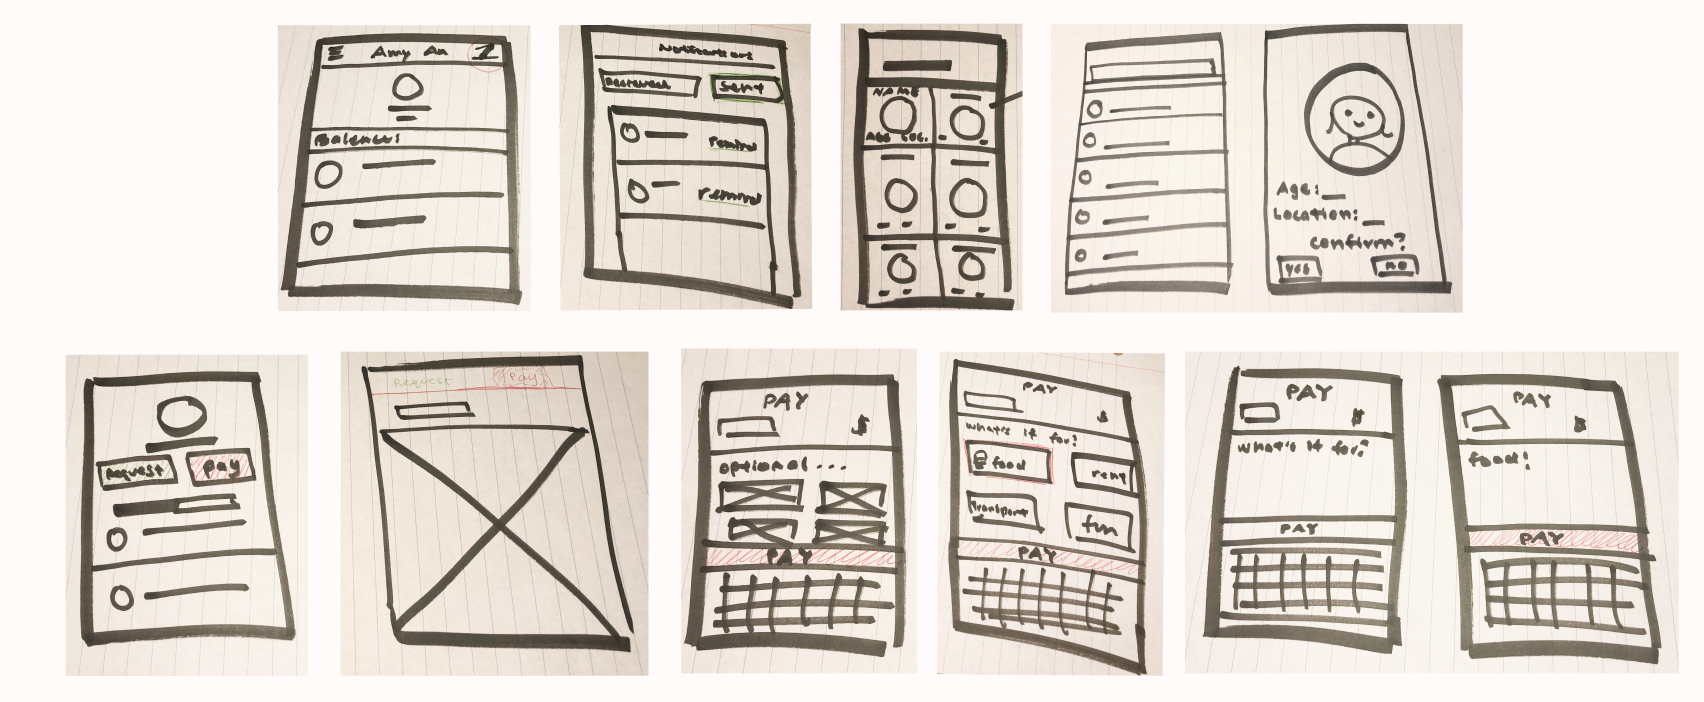 Amy An 1
Balances:
Notifications
Received Sent
remind
remind
NAME
AGE LOC.
Age:
Location:
confirm?
yes no
Request pay
Request Pay
PAY
$
optional...
PAY
PAY
$
what's it for?
food rent
Transport fun
PAY
PAY
$
what's it for?
PAY
PAY
$
food!
PAY